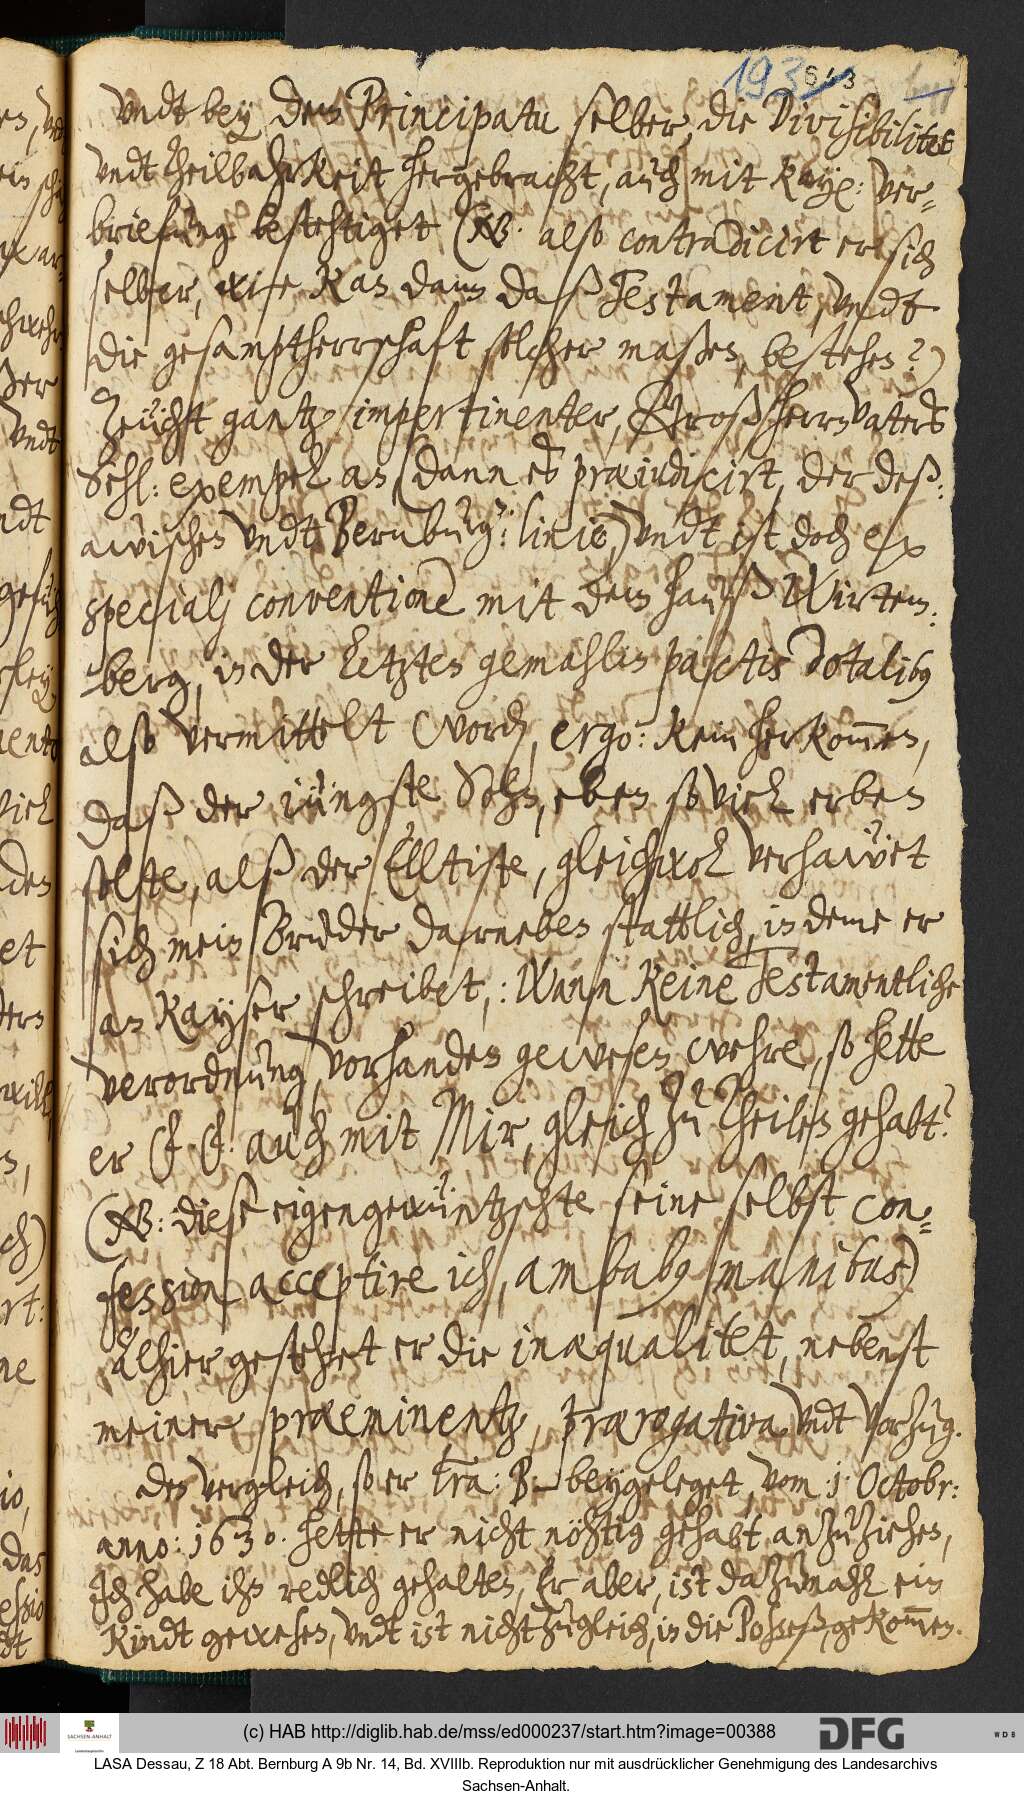 193 643
vndt bey dem Principatu selber, die Divisibilitet
vndt theilbahrkeitt hergebracht, auch mit Kay: ver-
briefung bestehtiget (NB. also contradicirt er sich
selber, wie kan dann daß Testament, vndt
die gesamptherrschaft solcher maßen, bestehen?)
Zeücht gantz impertinenter, GroßherrnVaters
Sehl: exempel an, (dann es præiudicirt, der deß-
awischen vndt Bernburg: linie) vndt ist doch ex
specialj conventione mit dem hauß Wirtem-
berg, in der letzten gemahlin pactis dotalib9
also vermittelt word, ergo: kein herkom̅en,
daß der iüngste Sohn, eben so viel erben
solte, alß der Elltiste, gleichwol verhawet
sich mein Bruder darneben stattlich, in deme er
an Kayser schreibet,: Wann keine Testamentliche
verordnung, vorhanden gewesen wehre, so hette
er F F. auch mit Mir, gleich zu Theilen gehabt?
(NB: diese eigengewüntzschte seine selbst con-
fession acceptire ich, ambab9 manibus)
Alhier gestehet er die inæqualitet, nebenst
meiner præeminentz, prærogativa vndt vorzug.
Den vergleich, so er Lra: B beygeleget, vom 1. Octobr:
anno: 1630. hette er nicht nöhtig gehabt anzuziehen,
Ich habe ihn redlich gehalten, Er aber, ist dazumahl ein
Kindt gewesen, vndt ist nicht zugleich, in die Posseß, gekom̅en.
(c) HAB http://diglib.hab.de/mss/ed000237/start.htm?image=00388
SACHSEN-ANHALT
DFG
WDB
LASA Dessau, Z 18 Abt. Bernburg A 9b Nr. 14, Bd. XVIIIb. Reproduktion nur mit ausdrücklicher Genehmigung des Landesarchivs
Sachsen-Anhalt.